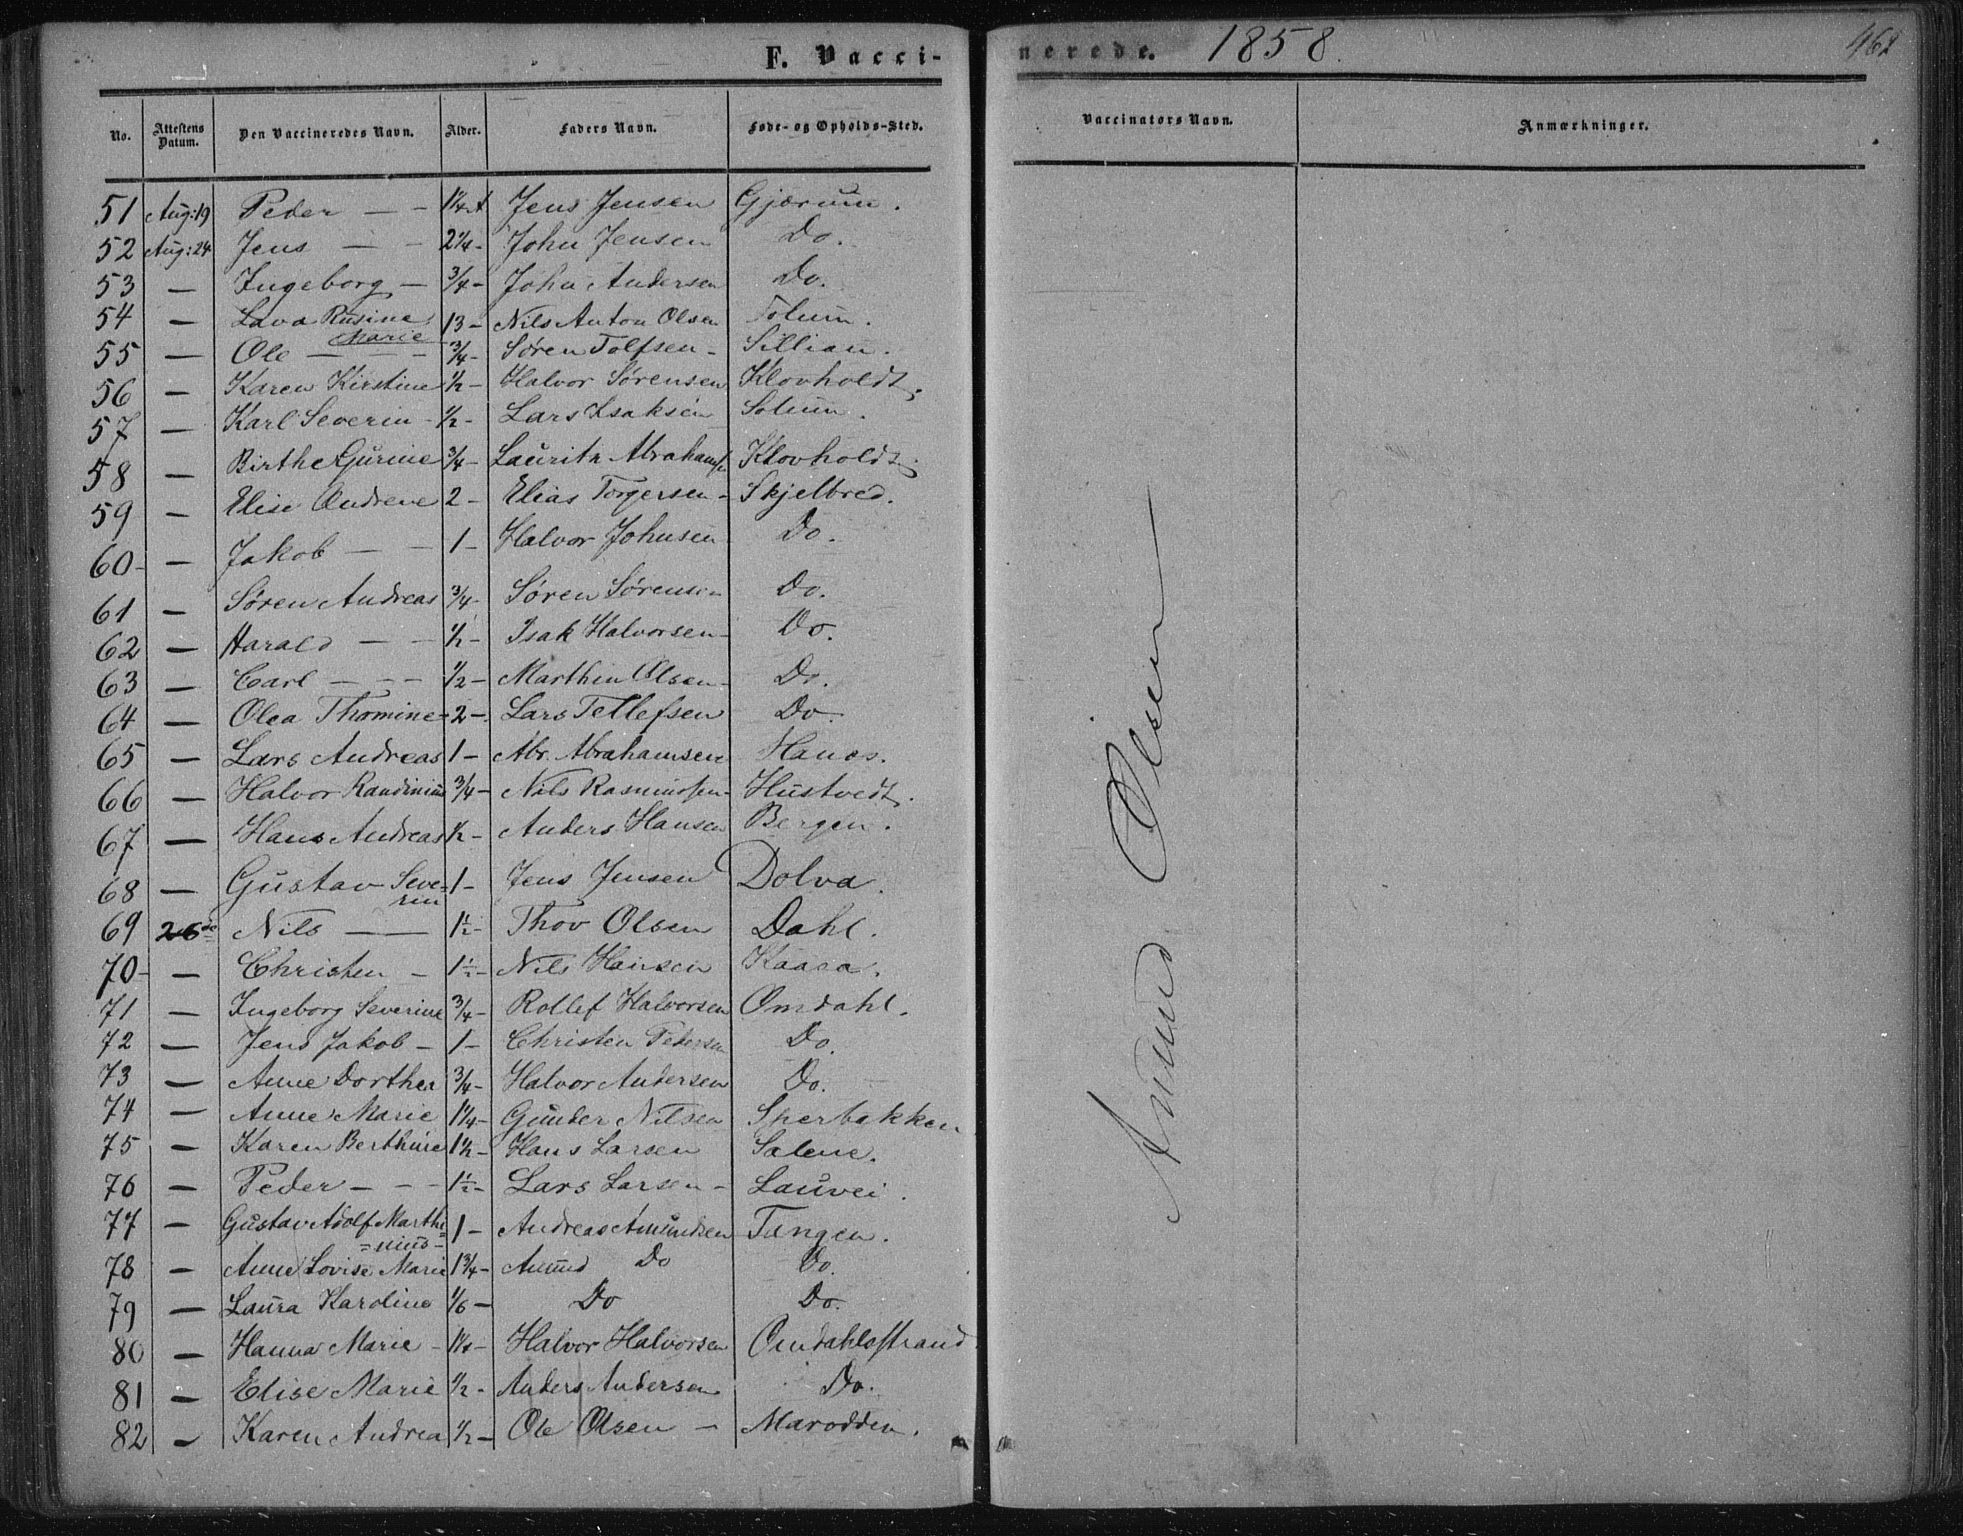 F. Vaccinerede. 1858. 462
No. | Attestens Datum. | Den Vaccineredes Navn. | Alder. | Faders Navn. | Føde- og Opholds-Sted. | Vaccinators Navn. | Anmærkninger.
51 Aug: 19 Peder — — 1¼ A Jens Jensen Gjærum.
52 Aug: 24 Jens — — 2¼ - John Jensen Do.
53 — Ingeborg — ¾ - John Andersen Do.
54 — Lava Rusine Marie 13 - Nils Anton Olsen Solum.
55 — Ole — — ¾ - Søren Tolfsen - Sillian.
56 — Karen Kirstine ½ - Halvor Sørensen Klovholdt.
57 — Karl Severin - ½ - Lars Isaksen Solum.
58 — Birthe Gurine ¾ - Lauritz Abrahams. Klovholdt.
59 — Elise Andrene 2 - Elias Torgersen - Skjelbred.
60 - — Jakob — — 1 - Halvor Johnsen Do.
61 — Søren Andreas ¾ - Søren Sørensen Do.
62 — Harald — — ½ - Isak Halvorsen - Do.
63 — Carl — - - ½ - Marthin Olsen - Do.
64 — Olea Thomine - 2 - Lars Tellefsen Do.
65 — Lars Andreas 1 - Abr. Abrahamsen Hanes.
66 — Halvor Randinius ¾ - Nils Rasmussen - Hustvedt.
67 — Hans Andreas ½ - Anders Hansen Bergen.
68 — Gustav Seve=
rin 1 - Jens Jensen Dolva.
69 26de Nils — — 1½ - Thov Olsen Dahl.
70 - — Christen - 1½ - Nils Hansen Kaasa.
71 — Ingeborg Severine ¾ - Rollef Halvorsen Omdahl.
72 — Jens Jakob - 1 - Christen Pedersen Do.
73 — Anne Dorthea ¾ - Halvor Andersen Do.
74 — Anne Marie 1¼ - Gunder Nilsen Sperbakken
75 — Karen Berthine 1½ - Hans Larsen Salene.
76 — Peder - - - 1½ - Lars Larsen - Lauvei.
77 — Gustav Adolf Marthi=
=nius - 1 - Andreas Amundsen Tangen.
78 — Anne Lovise Marie 1¾ - Amund Do Do.
79 — Laura Karoline 1/6 - Do Do.
80 — Hanna Marie - 1¼ - Halvor Halvorsen Omdahlsstrand.
81 — Elise Marie ½ - Anders Andersen Do.
82 — Karen Andrea ½ - Ole Olsen — Marodden.
Amund Olsen